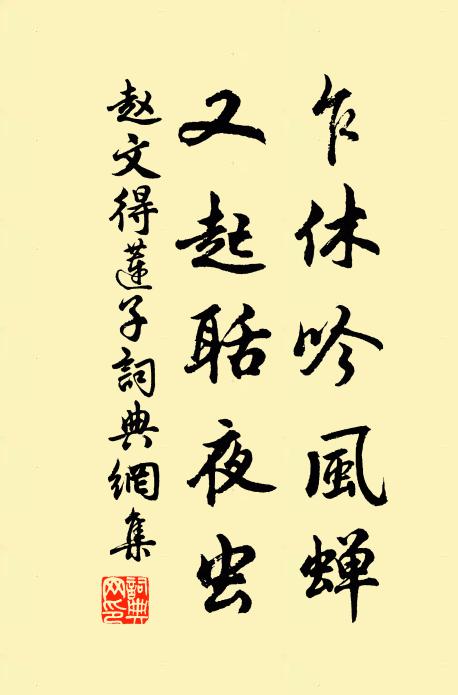 乍休吟風蝉
又起聒夜虫
赵文得蓮子詞典網集
詞典
网印